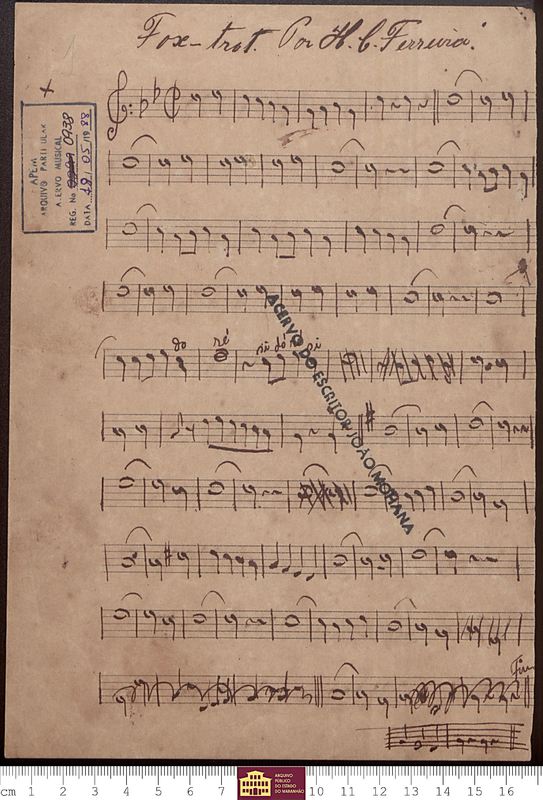 Fox-trot. Por H. C. Ferreira.
APEM
ARQUIVO PARTICULAR
ACERVO MUSICAL
REG. No 0938
DATA 18/05/1988
do ré
ACERVO DO ESCRITOR JOÃO MOHANA
Fim
cm 1 2 3 4 5 6 7 10 11 12 13 14 15 16
ARQUIVO
PÚBLICO
DO ESTADO
DO MARANHÃO